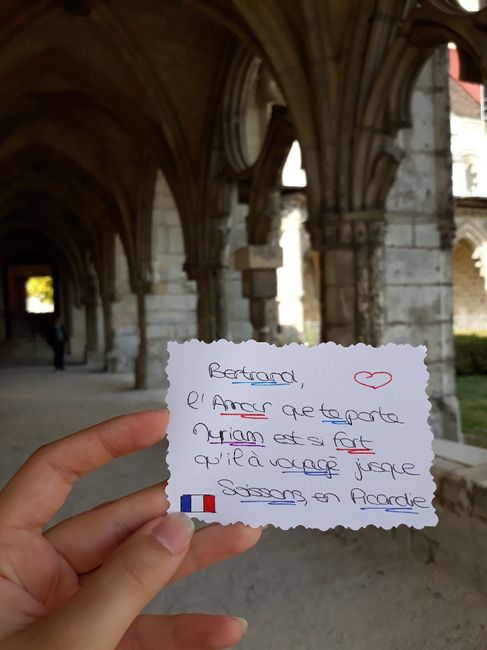 Bertrand,
l'Amour que te porte
Myriam est si fort
qu'il à voyagé jusque
Soissons, en Picardie